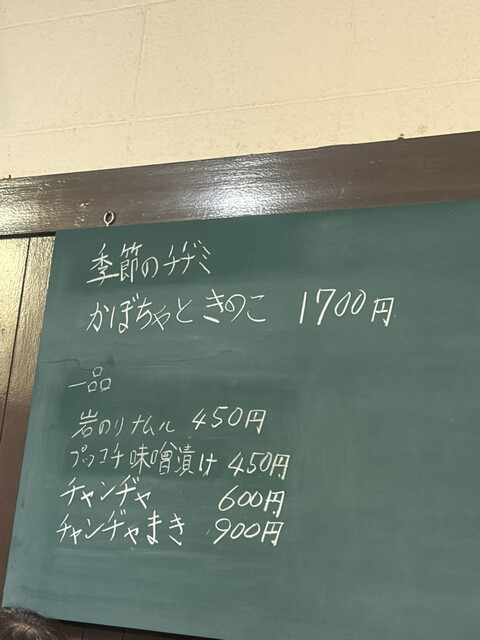 季節のチヂミ
かぼちゃときのこ 1700円
一品
岩のりナムル 450円
プッコチ味噌漬け 450円
チャンヂャ 600円
チャンヂャまき 900円